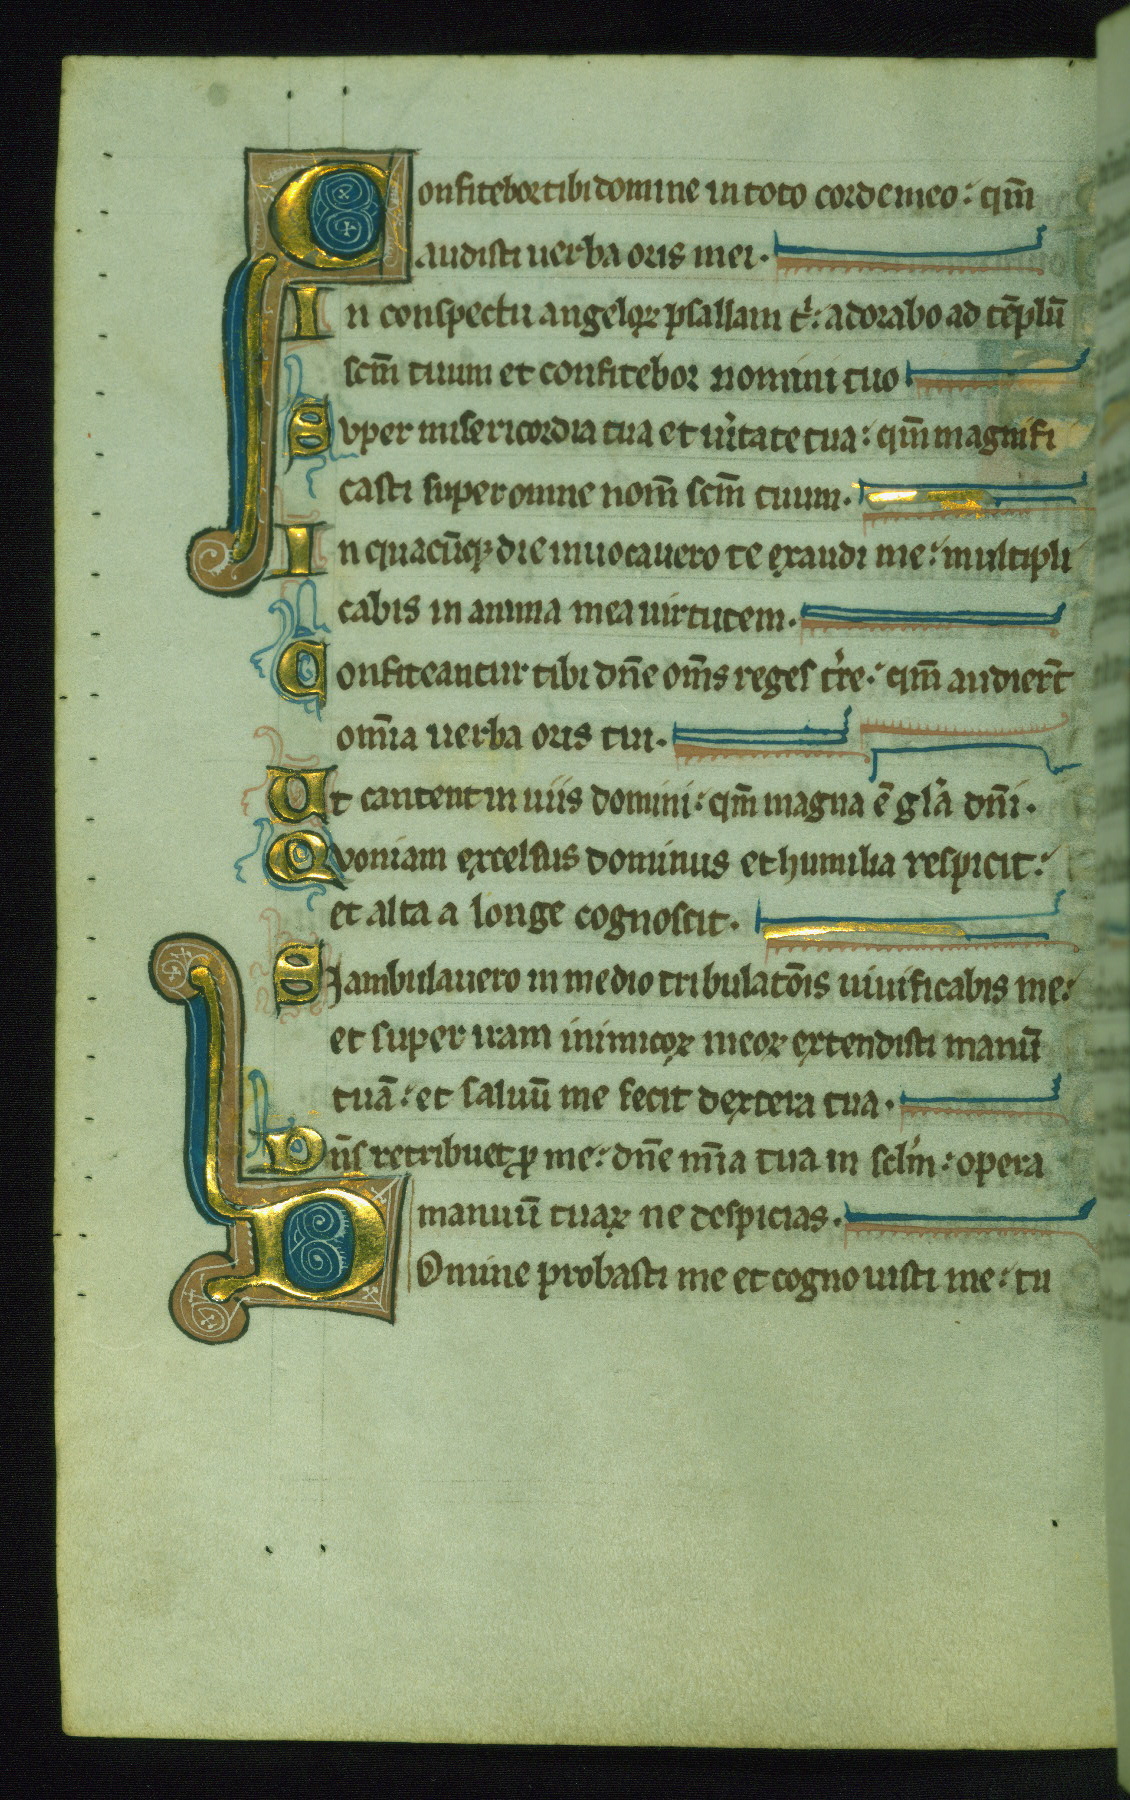 Confitebor tibi domine in toto corde meo: qm̄
audisti uerba oris mei.
In conspectu angeloꝝ ꝑsallam t̍: adorabo ad tēplū
scm̄ tuum et confitebor nomini tuo
Svper misericordia tua et uītate tua: qm̄ magnifi
casti super omne nom̄ scm̄ tuum.
In quacūqꝫ die inuocauero te exaudi me: multipli
cabis in anima mea uirtutem.
Confiteantur tibi dn̄e om̄s reges tr̄e: qm̄ audier̄t
om̄ia uerba oris tui.
Ut cantent in uiis domini: qm̄ magna ē gl̄a dn̄i.
Qvoniam excelsus dominus et humilia respicit:
et alta a longe cognoscit.
SJ ambulauero in medio tribulatōis uiuificabis me:
et super iram inimicoꝝ meoꝝ extendisti manū
tuā: et saluū me fecit dextera tua.
Dn̄s retribuet ꝓ me: dn̄e mīa tua in sclm̄: opera
manuū tuaꝝ ne despicias.
DOmine probasti me et cognouisti me: tu